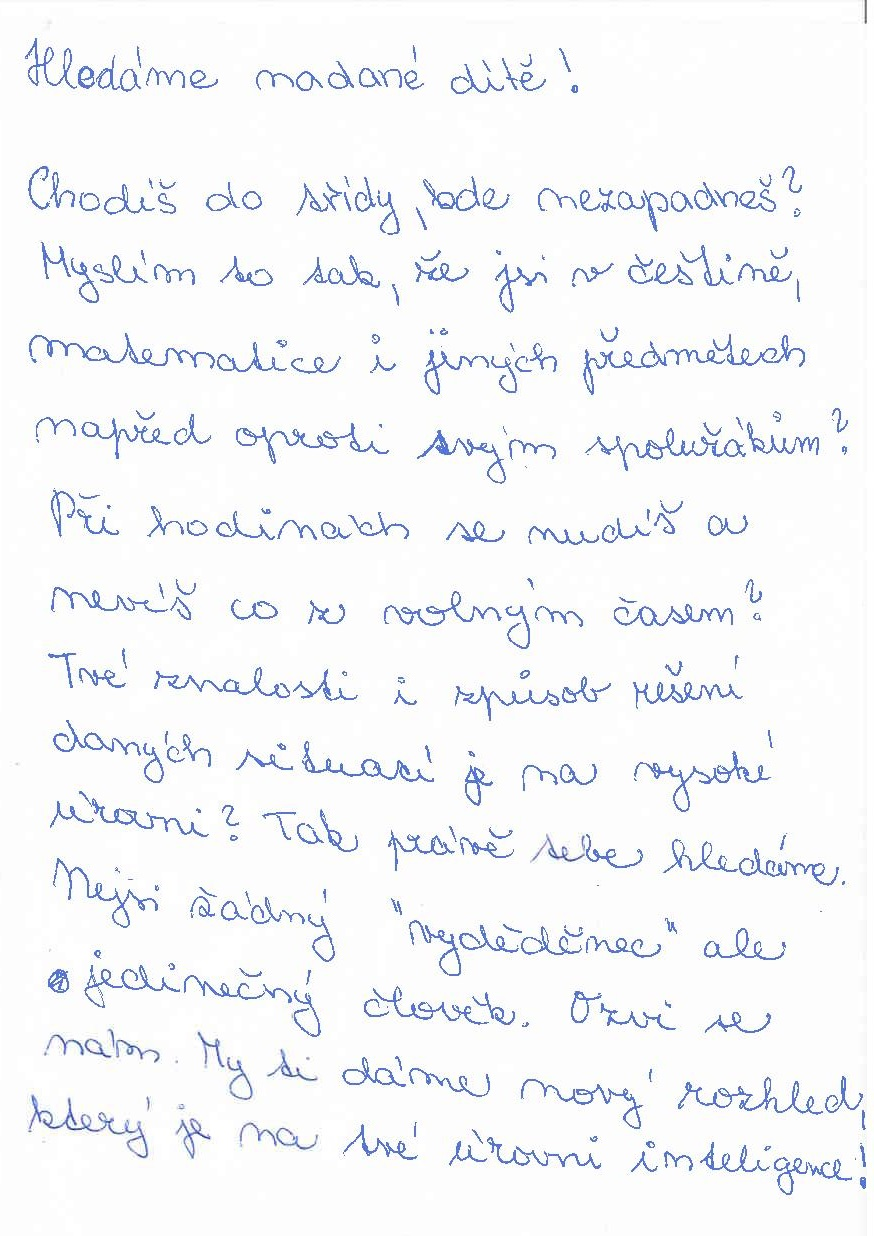 Hledáme nadané dítě!
Chodíš do třídy, kde nezapadneš?
Myslím to tak, že jsi v češtině,
matematice i jiných předmětech
napřed oproti svým spolužákům?
Při hodinách se nudíš a
nevíš co z volným časem?
Tvé znalosti i způsob řešení
daných situací je na vysoké
úrovni? Tak právě tebe hledáme.
Nejsi žádný "vyděděnec" ale
jedinečný člověk. Ozvi se
nám. My ti dáme nový rozhled,
který je na tvé úrovni inteligence!